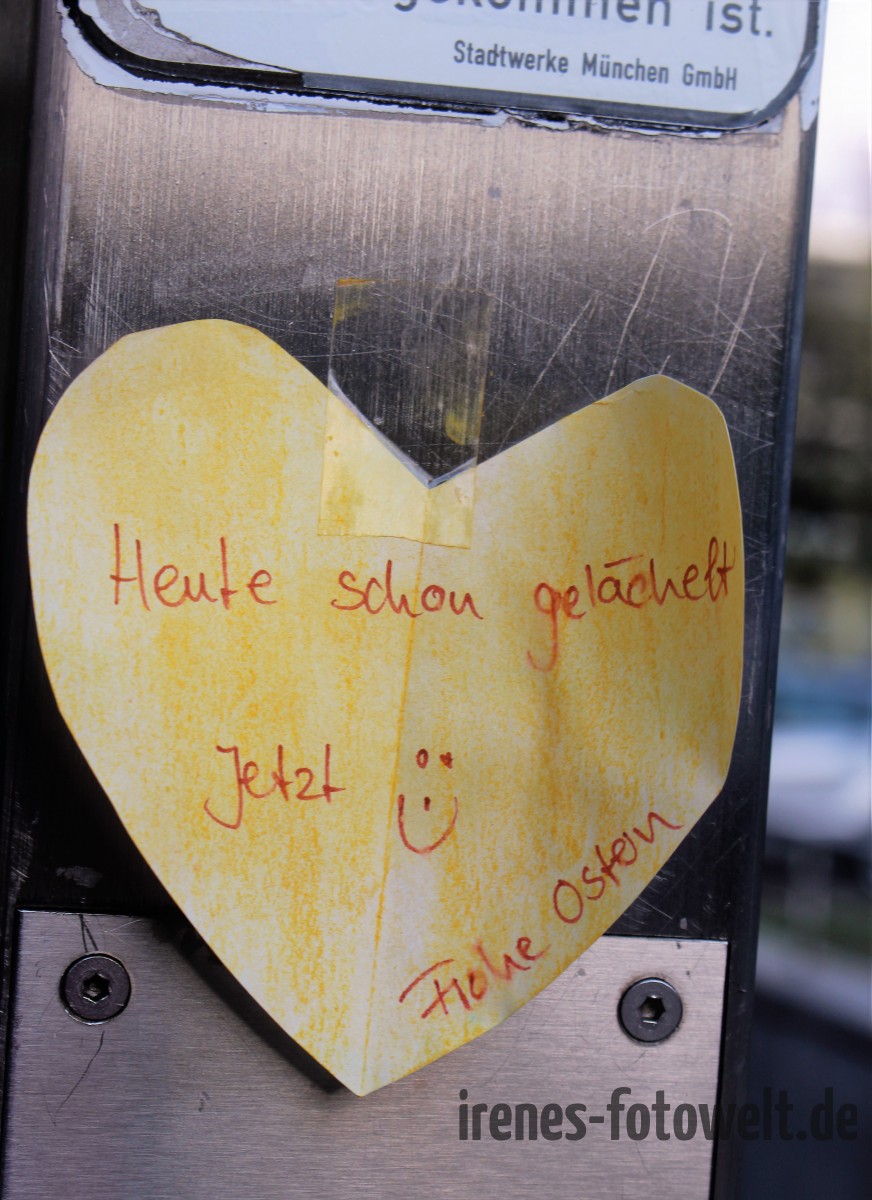 gekommen ist.
Stadtwerke München GmbH
Heute schon gelächelt
Jetzt
Frohe Ostern
irenes-fotowelt.de